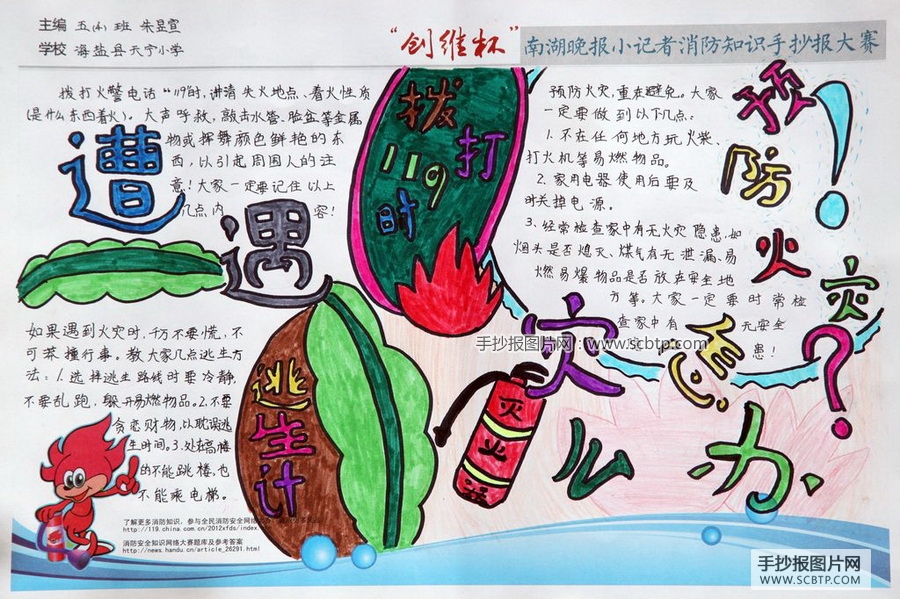 主编 五(4)班 朱昱宣
学校 海盐县天宁小学
“创维杯”
南湖晚报小记者消防知识手抄报大赛
拨打火警电话“119”时,讲清失火地点、着火性质
(是什么东西着火)。大声呼救,敲击水管、脸盆等金属
物或挥舞颜色鲜艳的东
西,以引起周围人的注
意!大家一定要记住以上
几点内容!
拨打
119
时
预防火灾,重在避免。大家
一定要做到以下几点:
1.不在任何地方玩火柴、
打火机等易燃物品。
2.家用电器使用后要及
时关掉电源。
3.经常检查家中有无火灾隐患,如
烟头是否熄灭、煤气有无泄漏、易
燃易爆物品是否放在安全地
方等。大家一定要时常检
查家中有无安全
患!
预防火灾!?
遭遇火灾怎么办
如果遇到火灾时,千万不要慌,不
可莽撞行事。教大家几点逃生方
法:1.选择逃生路线时要冷静,
不要乱跑,躲开易燃物品。2.不要
贪恋财物,以耽误逃
生时间。3.处在高楼
的不能跳楼,也
不能乘电梯。
逃生计
灭火器
手抄报图片网:www.scbtp.com
了解更多消防知识,参与全民消防安全网络
http://119.china.com.cn/2012xfds/index.
消防安全知识网络大赛题库及参考答案
http://news.handu.cn/article_26291.html
手抄报图片网
WWW.SCBTP.COM